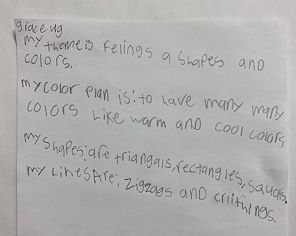 grace ug
my theme is felings a shapes and
colors.
my color plan is: to have many many
colors like warm and cool colors
my shapes; are triangals, rectangles, squals.
my lines Are; zigzags and